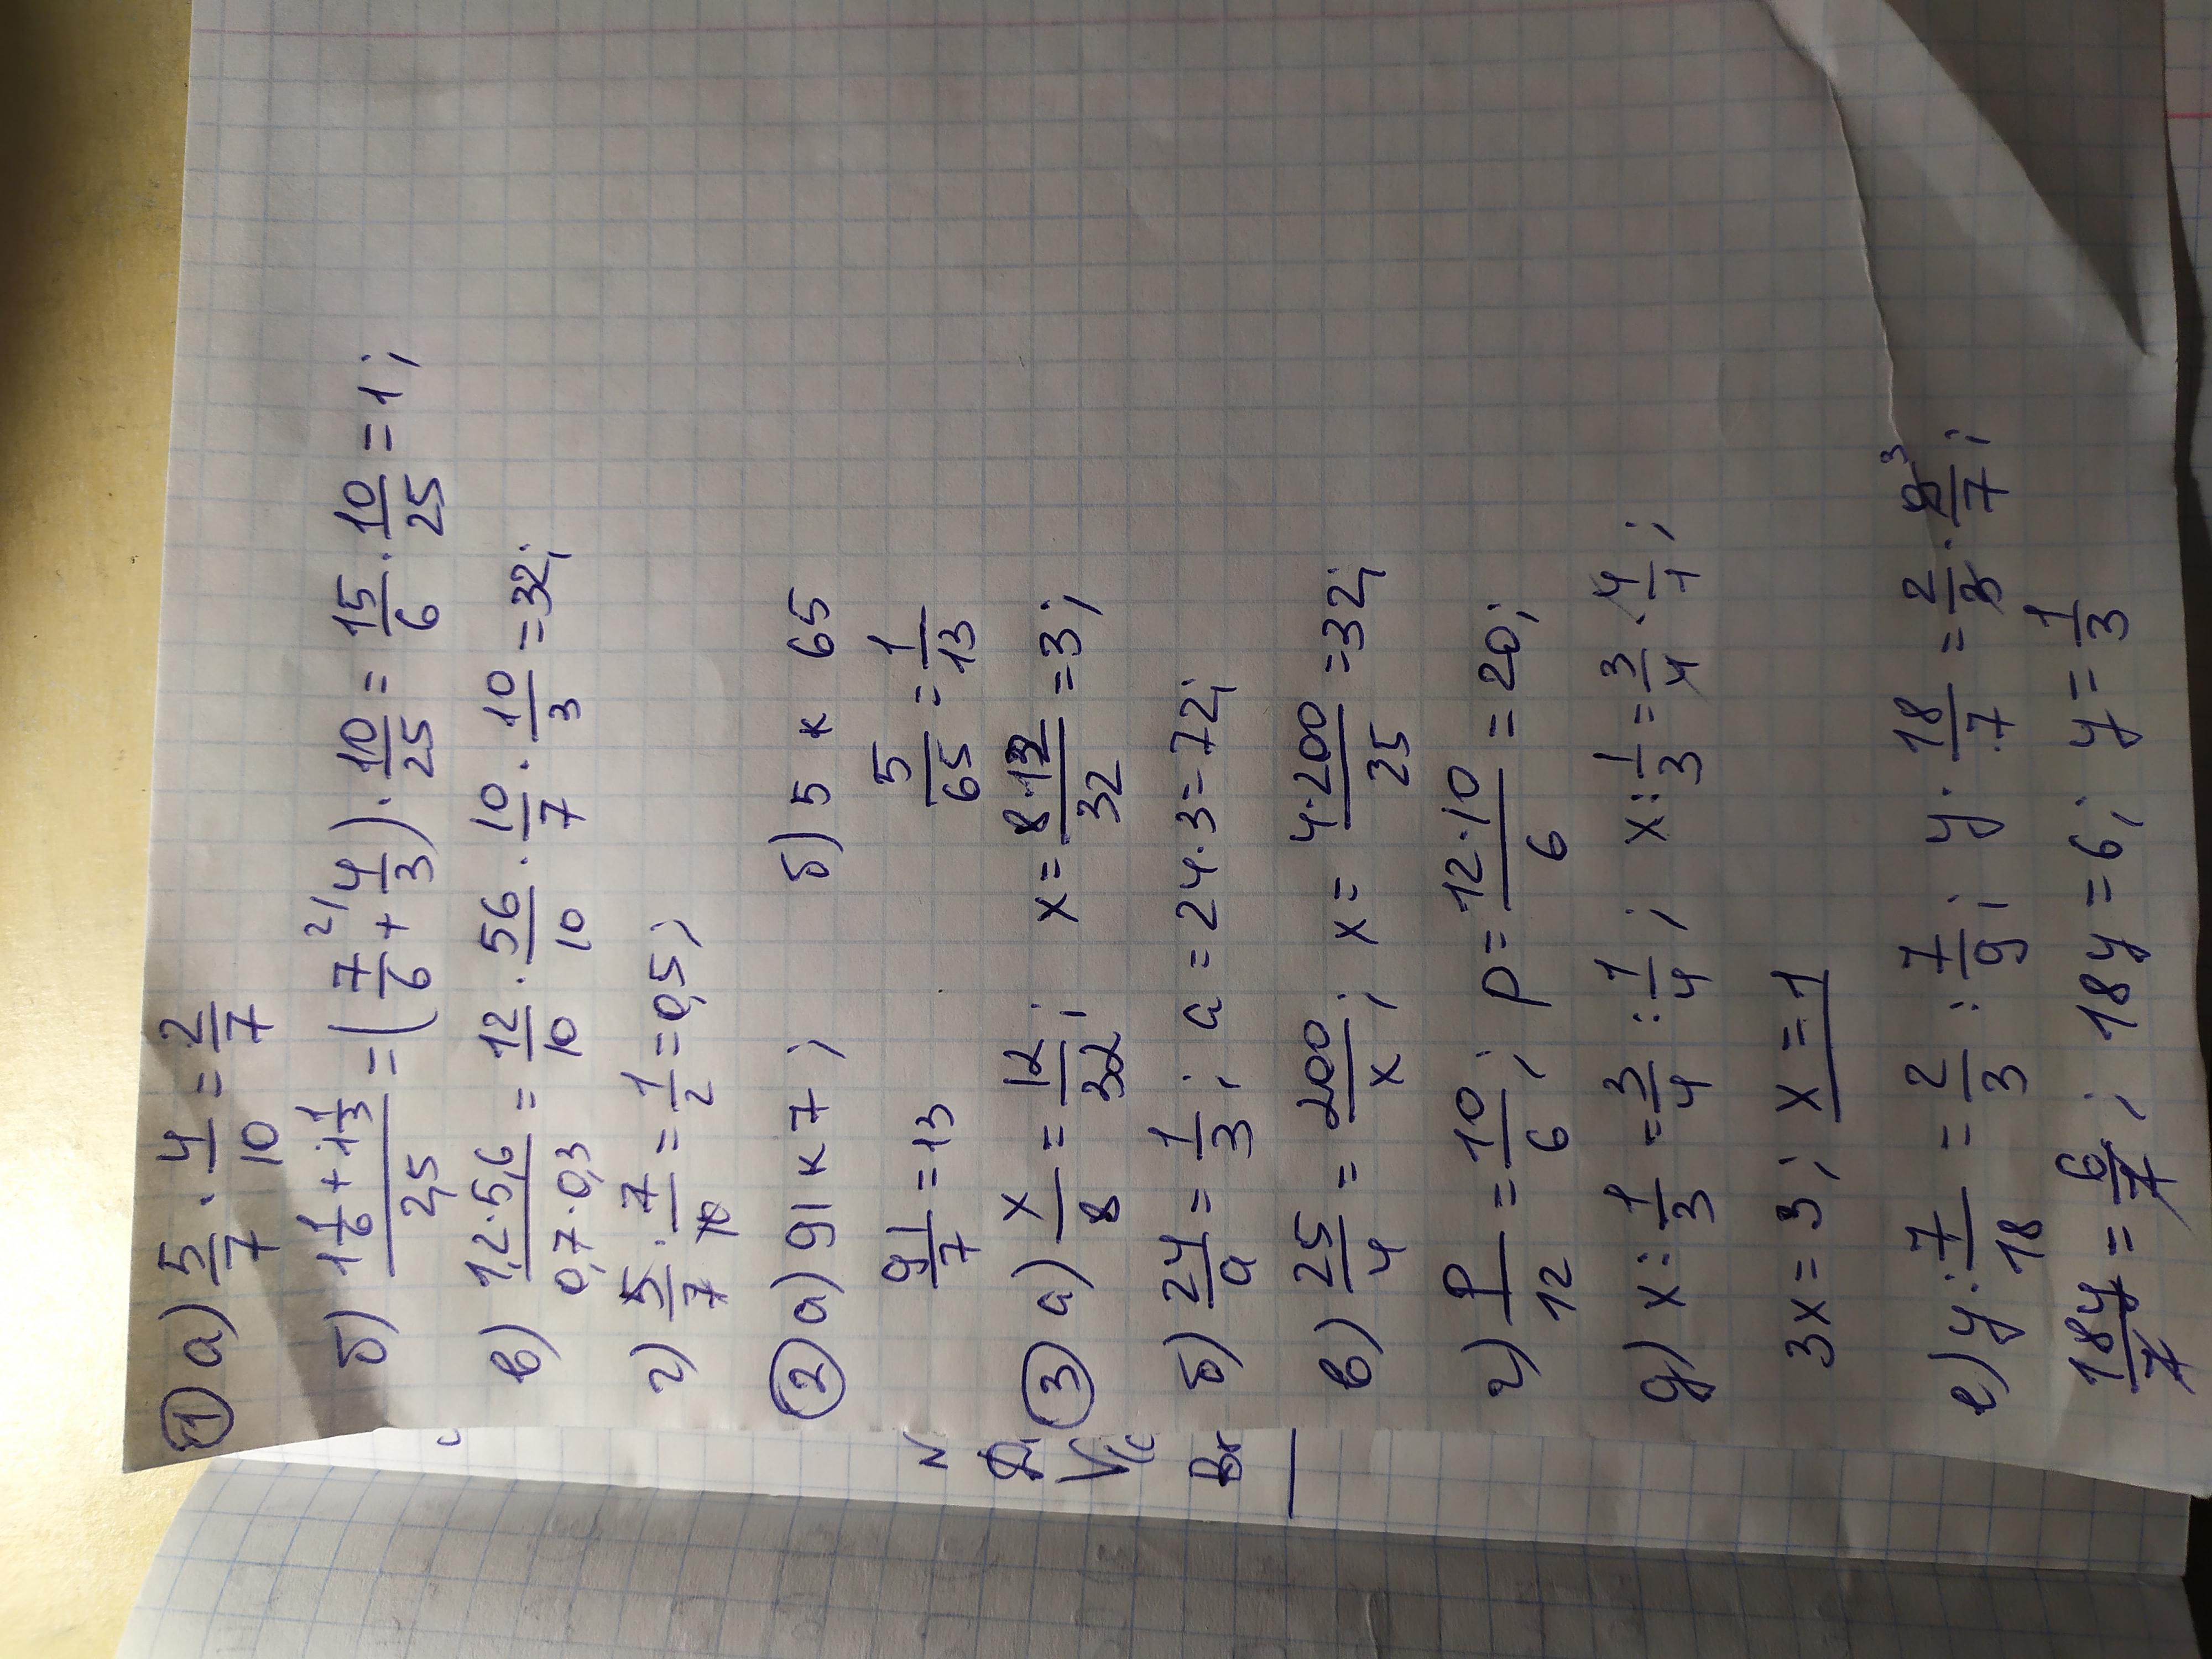 ① а) 5/7 · 4/10 = 2/7
б) (1 1/6 + 1 1/3)/2,5 = (7/6 + 4/3 ^2/) · 10/25 = 15/6 · 10/25 = 1;
в) (1,2 · 5,6)/(0,7 · 0,3) = 12/10 · 56/10 · 10/7 · 10/3 = 32;
г) 5/7 · 7/10 = 1/2 = 0,5;
② а) 91 к 7; б) 5 к 65
91/7 = 13 5/65 = 1/13
③ а) x/8 = 12/32; x = (8 · 12)/32 = 3;
б) 24/a = 1/3; a = 24 · 3 = 72;
в) 25/4 = 200/x; x = (4 · 200)/25 = 32;
г) p/12 = 10/6; p = (12 · 10)/6 = 20;
д) x : 1/3 = 3/4 : 1/4; x : 1/3 = 3/4 · 4/1;
3x = 3; x = 1
е) y : 7/18 = 2/3 : 7/9; y · 18/7 = 2/3 · 9/7 ^3;
18y/7 = 6/7; 18y = 6; y = 1/3
Вr